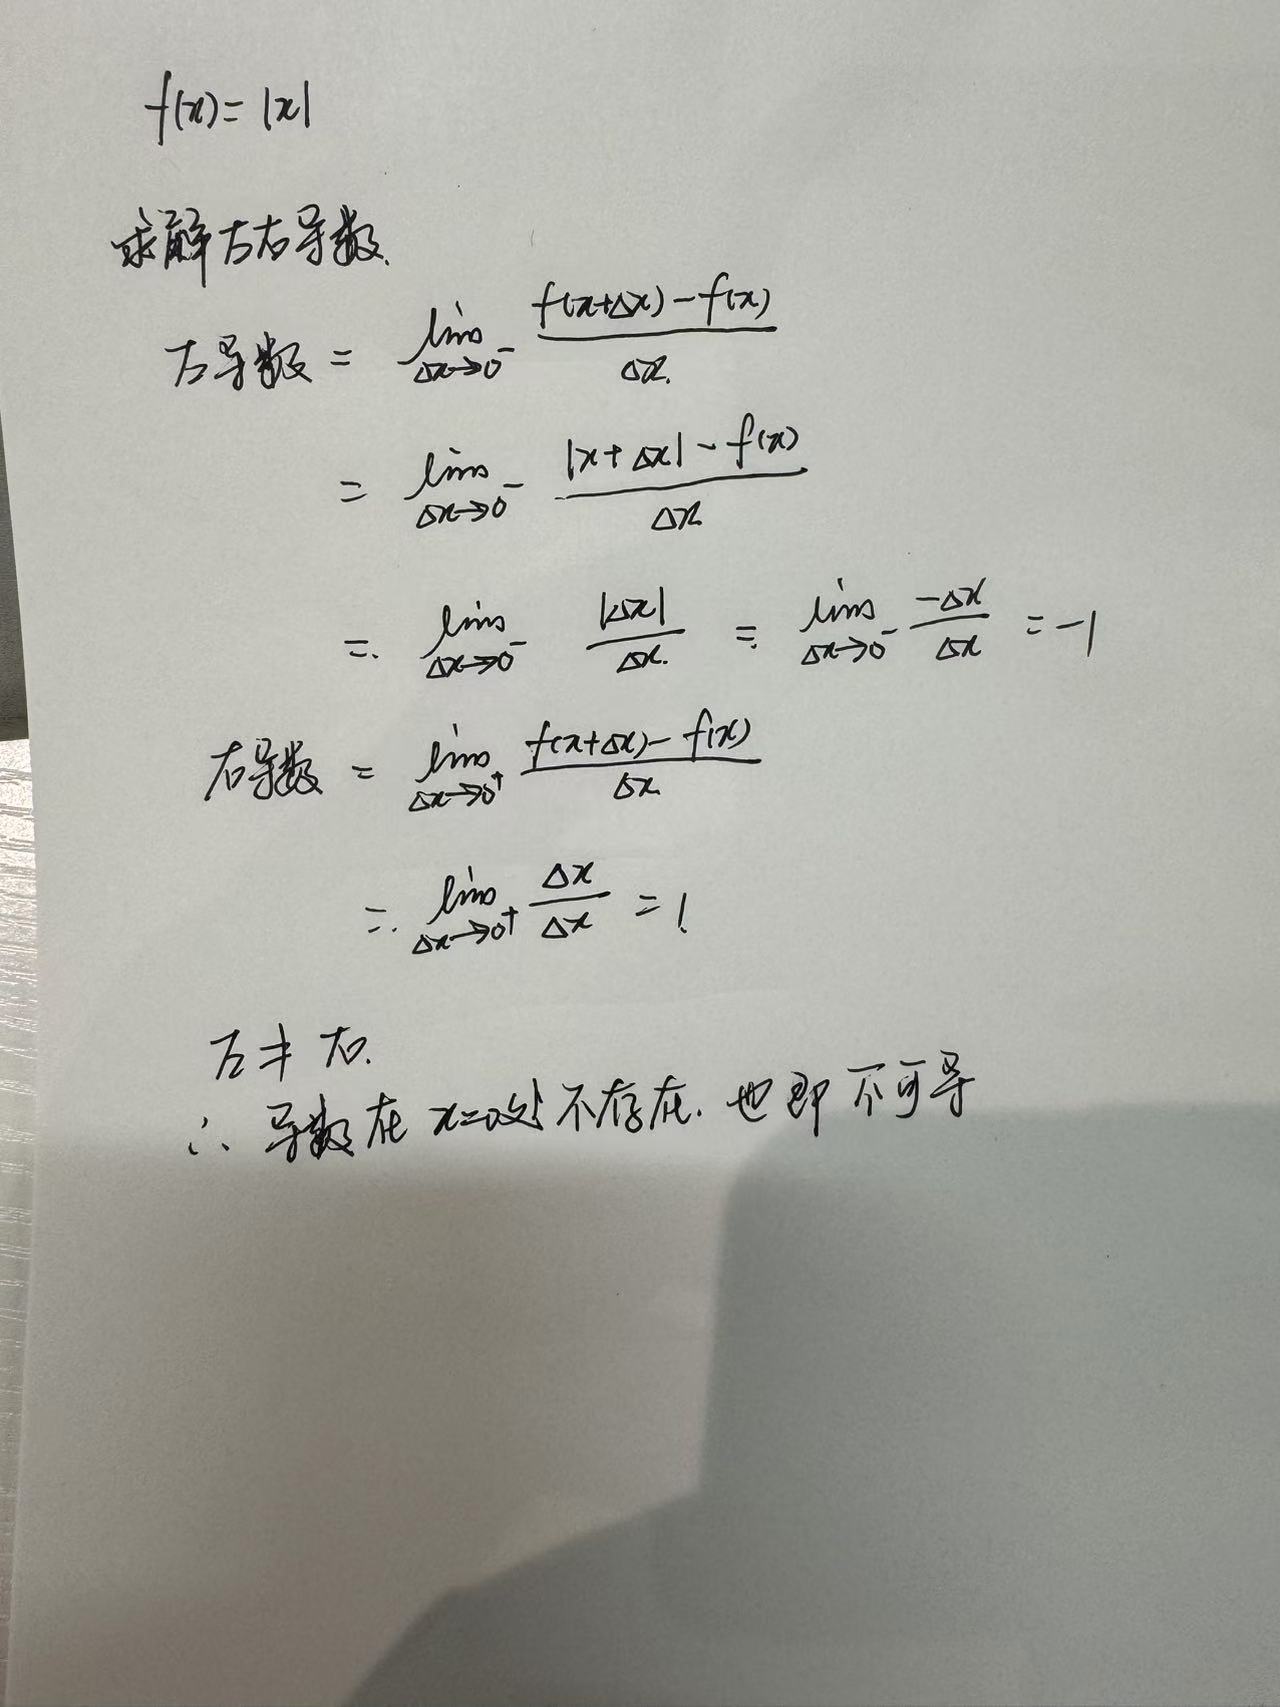 f(x)=|x|
求解左右导数.
左导数 = lim Δx→0⁻ (f(x+Δx)-f(x))/Δx.
= lim Δx→0⁻ (|x+Δx|-f(x))/Δx
= lim Δx→0⁻ |Δx|/Δx. = lim Δx→0⁻ -Δx/Δx = -1
右导数 = lim Δx→0⁺ (f(x+Δx)-f(x))/Δx
= lim Δx→0⁺ Δx/Δx = 1.
左≠右.
∴ 导数在x=0处不存在. 也即不可导